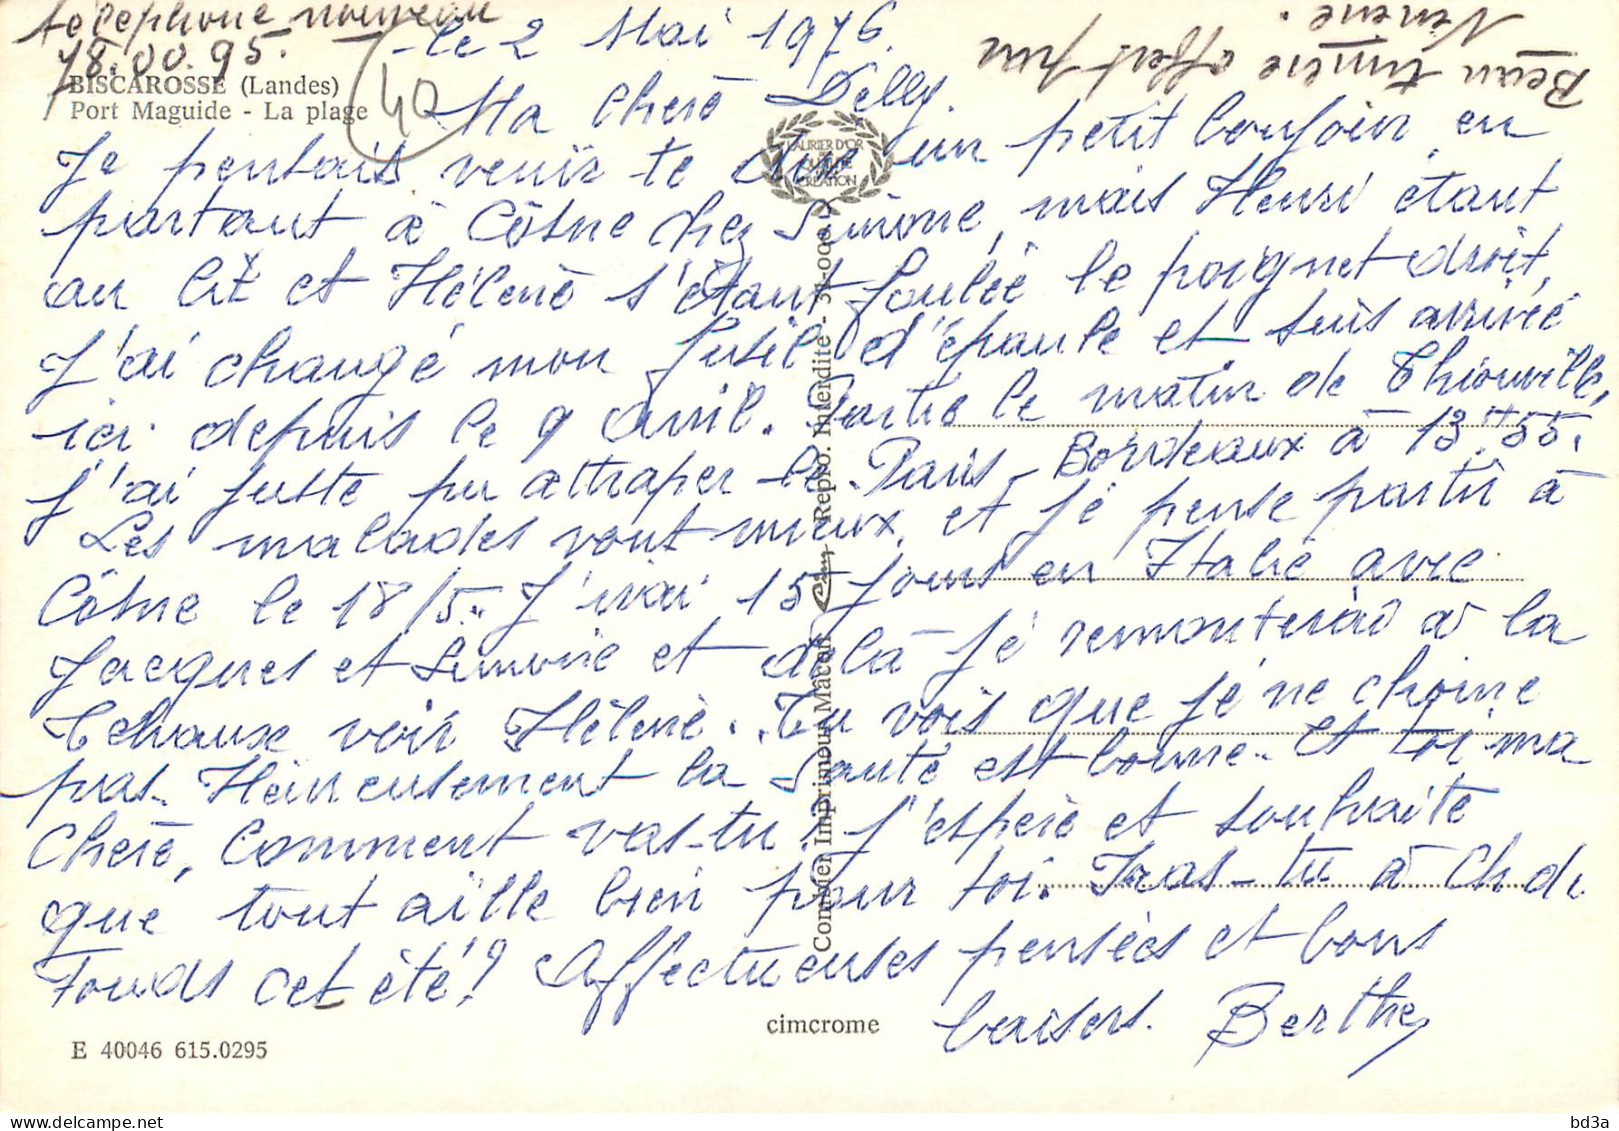 téléphone nouveau
78.00.95.
BISCAROSSE (Landes)
Port Maguide - La plage
40
le 2 Mai 1976.
Beau timbre offert par
Ma Chère Delly.
Je pensais venir te dire un petit bonjour, en
partant à Côsne chez Simone, mais Henri étant
au lit et Hélène s'étant foulée le poignet droit,
j'ai changé mon fusil d'épaule et suis arrivée
ici depuis le 9 avril. Partie le matin de Thionville,
j'ai juste pu attraper le Paris-Bordeaux à 13H55.
Les malades vont mieux, et je pense partir à
Côsne le 18/5. J'irai 15 jours en Italie avec
Jacques et Simone et delà je remonterai à la
voir Hélène. Tu vois que je ne chôme
pas. Heureusement la santé est bonne. Et toi ma
Chère, comment vas-tu? J'espère et souhaite
que tout aille bien pour toi. Iras-tu à Ch. de
Fonds cet été? Affectueuses pensées et bons
baisers. Berthe
LAURIER D'OR
DE LA
QUALITE
CREATION
Combier Imprimeur Mâcon Cim Repro. Interdite - 37-000
cimcrome
E 40046 615.0295
DELCAMPE.NET
bd3a